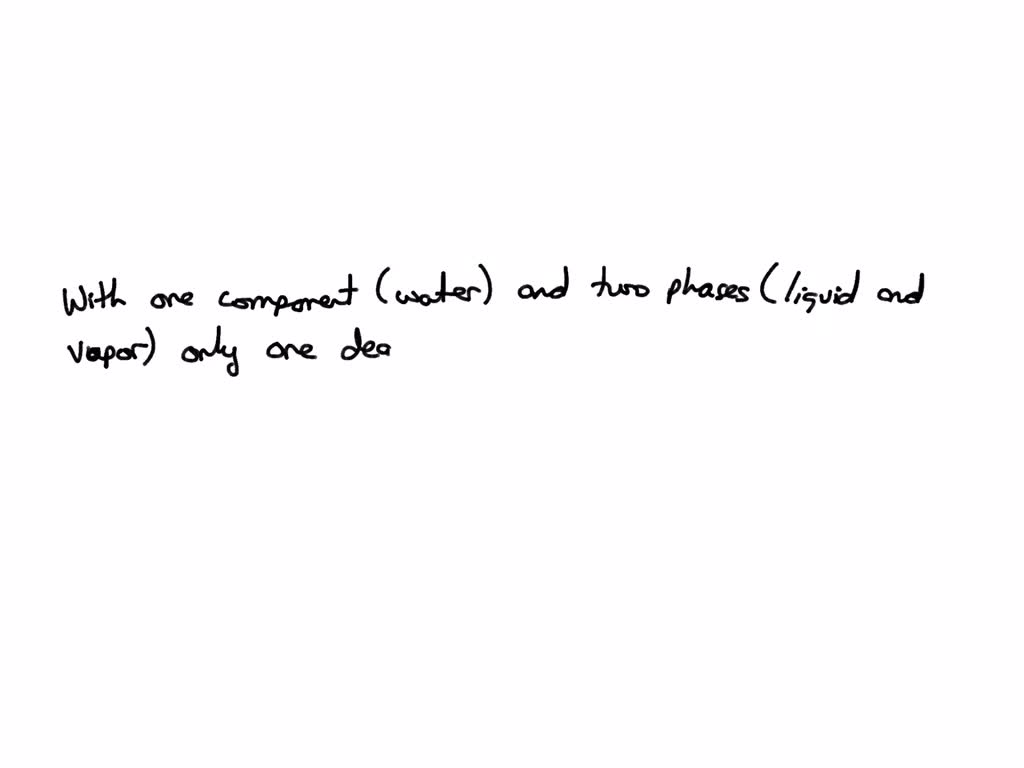 With one component (water) and two phases (liquid and
vapor) only one dea